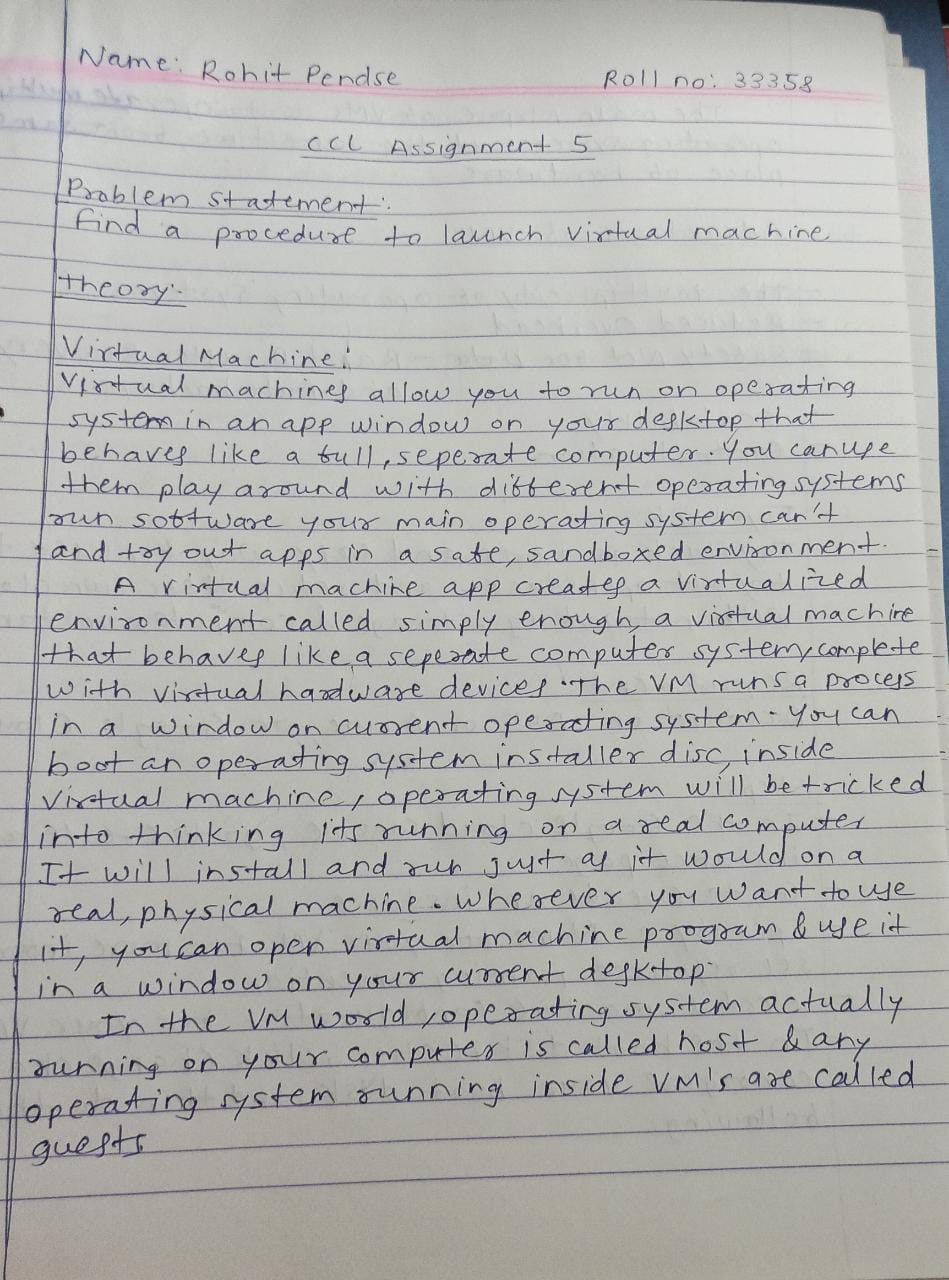 Name: Rohit Pendse Roll no: 33358
CCL Assignment 5
Problem statement:
Find a procedure to launch Virtual machine
Theory:-
Virtual Machine:
Virtual machines allow you to run on operating
system in an app window on your desktop that
behaves like a full, seperate computer. You can use
them play around with different operating systems
run software your main operating system can't
and try out apps in a safe, sandboxed environment.
A virtual machine app creates a virtualized
environment called simply enough, a virtual machine
that behaves like a seperate computer system, complete
with virtual hardware devices. The VM runs a process
in a window on current operating system. You can
boot an operating system installer disc, inside
virtual machine, operating system will be tricked
into thinking its running on a real computer
It will install and run just as it would on a
real, physical machine. Wherever you want to use
it, you can open virtual machine program & use it
in a window on your current desktop.
In the VM world, operating system actually
running on your computer is called host & any
operating system running inside VM's are called
guests